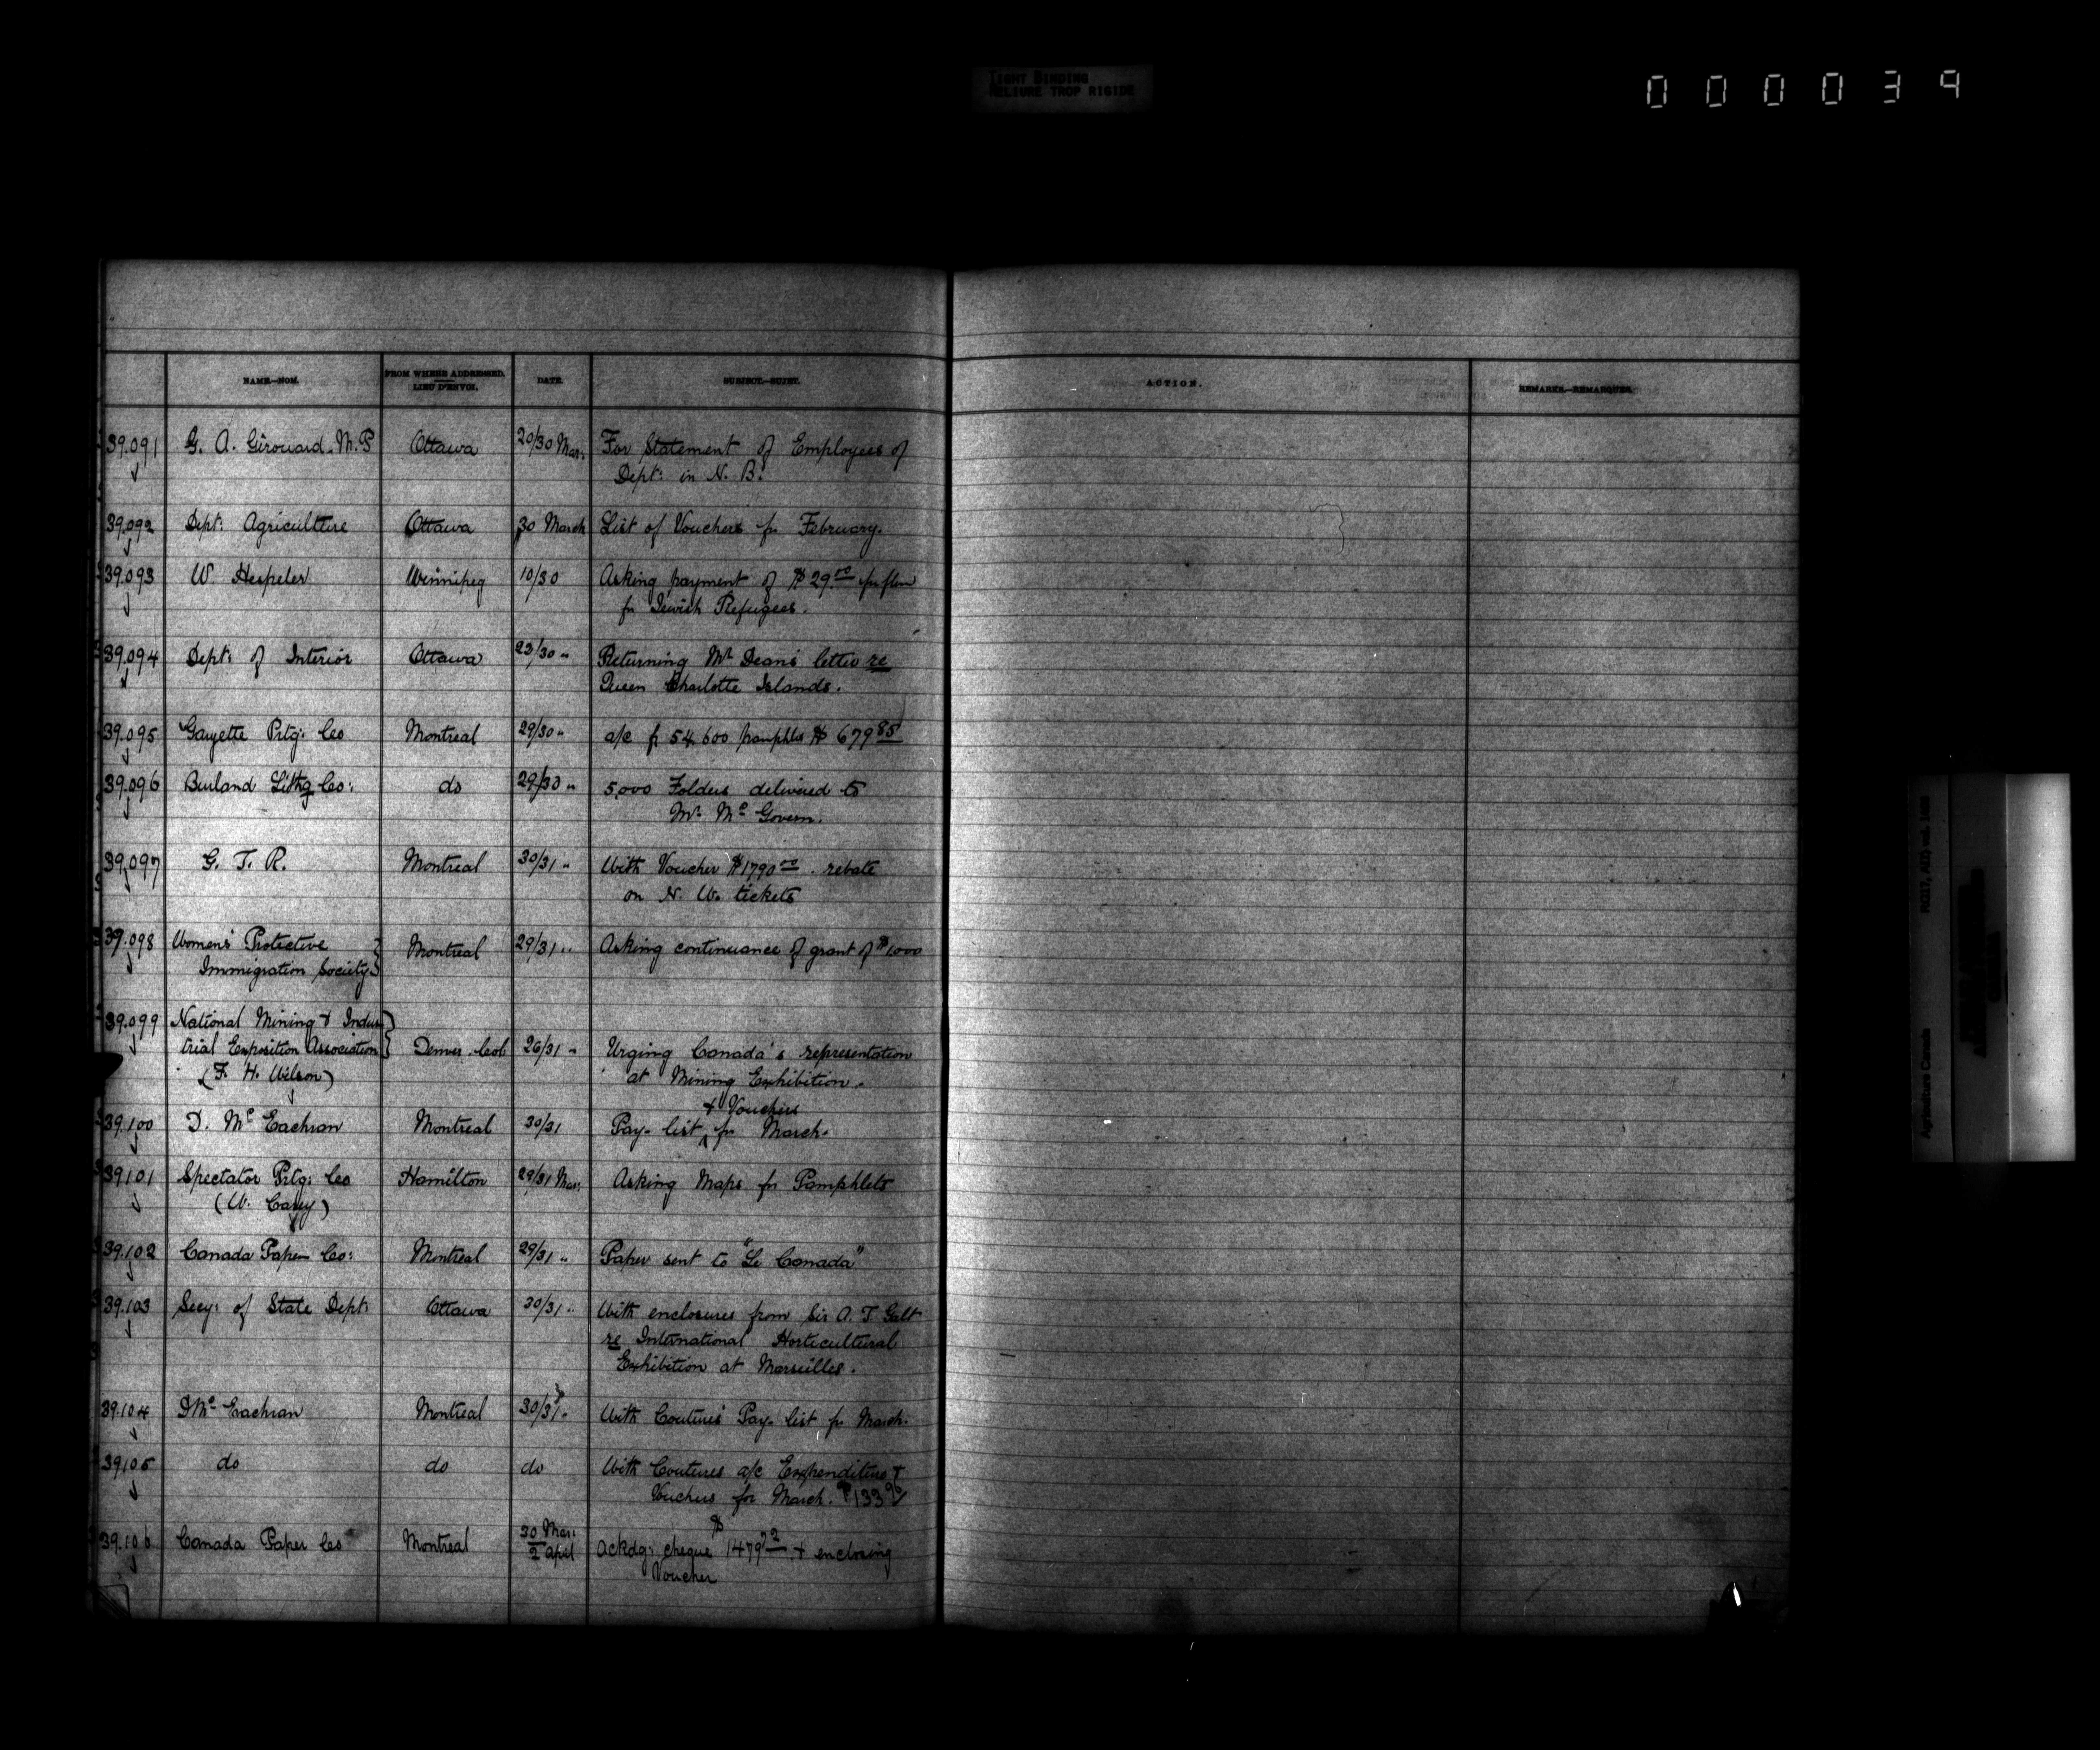 TIGHT BINDING
RELIURE TROP RIGIDE
000039
NAME.—NOM.
FROM WHERE ADDRESSED.
LIEU D'ENVOI.
DATE.
SUBJECT.—SUJET.
ACTION.
REMARKS.—REMARQUES.
39.091 G. A. Girouard. M.P Ottawa 20/30 Mar: For Statement of Employees of
Dept: in N. B.
39.092 Dept: Agriculture Ottawa 30 March List of Vouchers fr February.
39.093 W. Hespeler Winnipeg 10/30 Asking payment of $29.00
fr Jewish Refugees.
39.094 Dept: of Interior Ottawa 23/30 " Returning Mr Deans letter re
Queen Charlotte Islands.
39.095 Gazette Prtg: Co Montreal 29/30 " a/c fr 54,600 pamphlts $ 679 85
39.096 Burland Lithg Co: do 29/30 " 5,000 Folders delivered to
Mr Mc Govern.
39,097 G. T. R. Montreal 30/31 " With Voucher $1790 00 . rebate
on N. W. tickets
39.098 Womens' Protective Montreal 29/31 " Asking continuance of grant of $1,000
Immigration Society
39.099 National Mining & Indus
trial Exposition Association Denver. Col: 26/31 " Urging Canada's representation
(F. H. Wilson) at Mining Exhibition.
& Vouchers
39.100 D. Mc Eachran Montreal 30/31 Pay. list fr March.
39.101 Spectator Prtg: Co Hamilton 29/31 Mar: Asking Maps fr Pamphlets
(W. Carey)
39.102 Canada Paper Co: Montreal 29/31 " Paper sent to "Le Canada"
39.103 Secy: of State Dept: Ottawa 30/31 " With enclosures from Sir A. T Galt
re International Horticultural
Exhibition at Marseilles.
39.104 D Mc Eachran Montreal 30/31 " With Coutures' Pay. list fr March.
39.105 do do do With Coutures a/c Expenditure &
Vuchers for March. $133 96
39.106 Canada Paper Co Montreal 30 Mar:
2 April Ackdg: cheque $ 1479 22 & enclosing
Voucher
Agriculture Canada RG17, A I 2, vol.